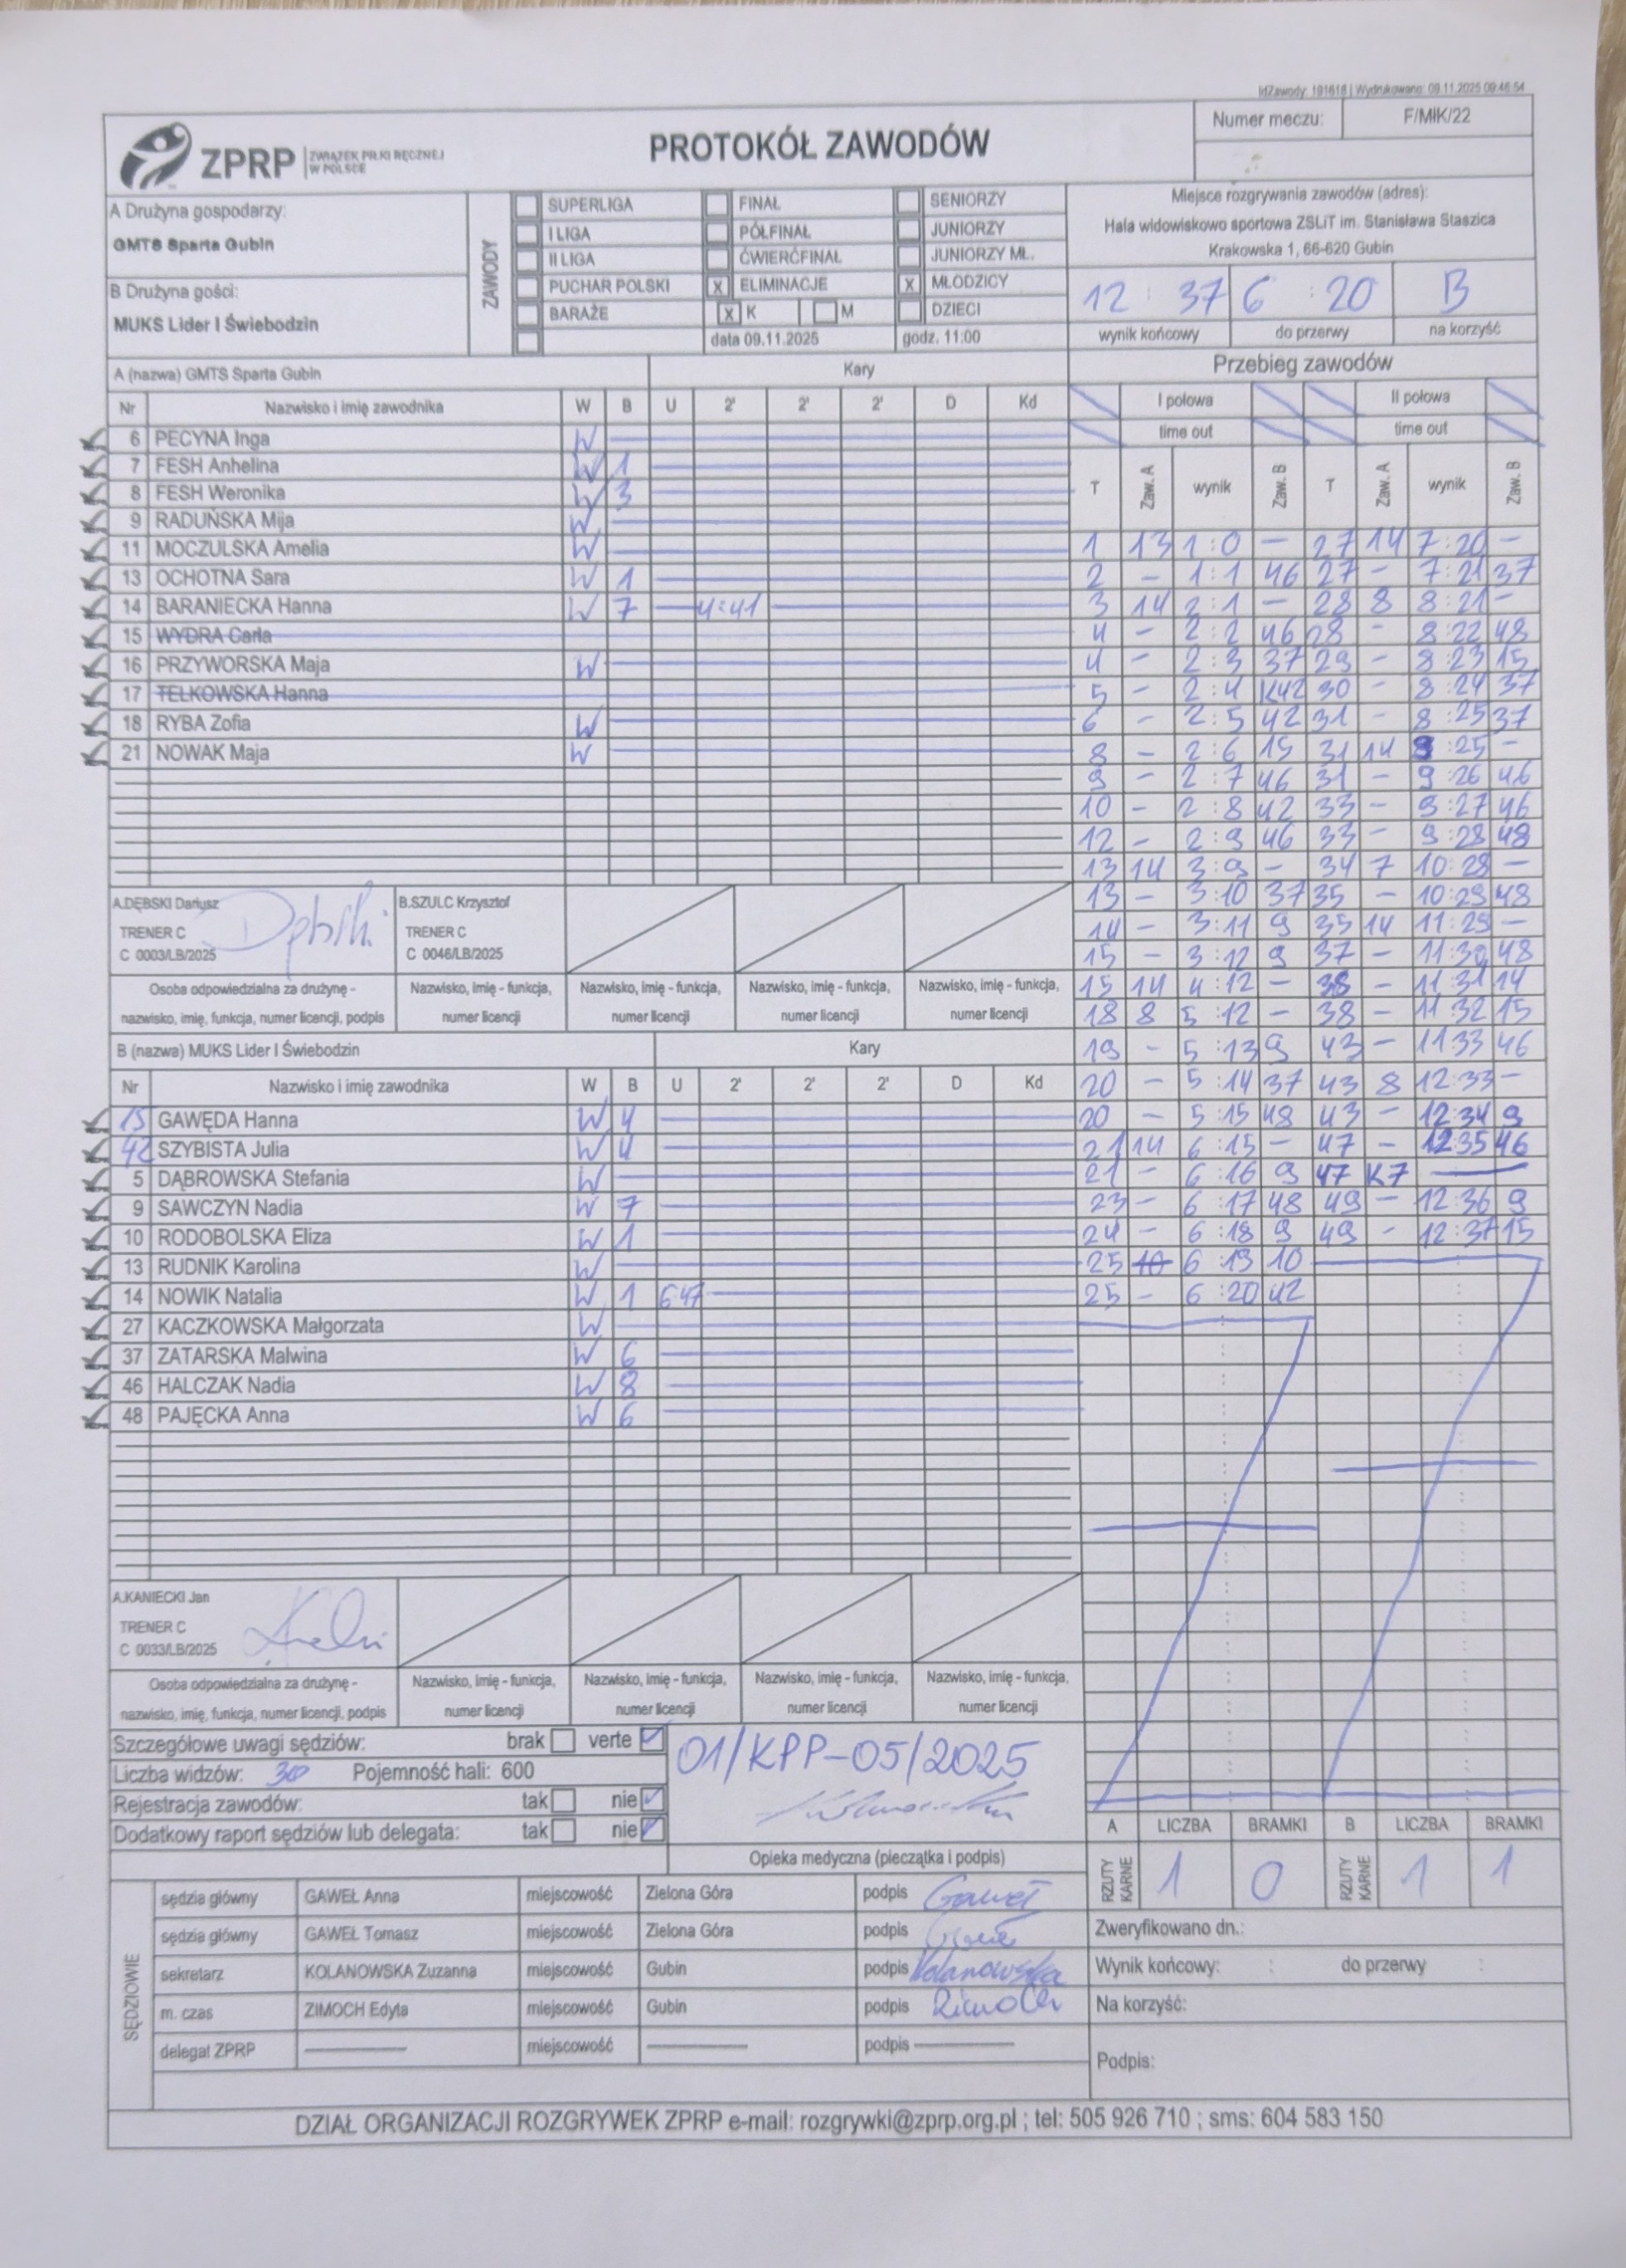 IdZawody: 191618 | Wydrukowano: 09.11.2025 09:46:54
ZPRP ZWIĄZEK PIŁKI RĘCZNEJ W POLSCE
PROTOKÓŁ ZAWODÓW
Numer meczu: F/MIK/22
A Drużyna gospodarzy:
GMTS Sparta Gubin
B Drużyna gości:
MUKS Lider I Świebodzin
ZAWODY
SUPERLIGA
I LIGA
II LIGA
PUCHAR POLSKI
BARAŻE
FINAŁ
PÓŁFINAŁ
ĆWIERĆFINAŁ
x ELIMINACJE
x K M
data 09.11.2025
SENIORZY
JUNIORZY
JUNIORZY MŁ.
x MŁODZICY
DZIECI
godz. 11:00
Miejsce rozgrywania zawodów (adres):
Hala widowiskowo sportowa ZSLiT im. Stanisława Staszica
Krakowska 1, 66-620 Gubin
12 : 37 6 : 20 B
wynik końcowy do przerwy na korzyść
A (nazwa) GMTS Sparta Gubin Kary
Nr Nazwisko i imię zawodnika W B U 2' 2' 2' D Kd
6 PECYNA Inga W
7 FESH Anhelina W 1
8 FESH Weronika W 3
9 RADUŃSKA Mija W
11 MOCZULSKA Amelia W
13 OCHOTNA Sara W 1
14 BARANIECKA Hanna W 7 4:41
15 WYDRA Carla
16 PRZYWORSKA Maja W
17 TELKOWSKA Hanna
18 RYBA Zofia W
21 NOWAK Maja W
A.DĘBSKI Dariusz
TRENER C
C 0003/LB/2025
B.SZULC Krzysztof
TRENER C
C 0046/LB/2025
Osoba odpowiedzialna za drużynę - nazwisko, imię, funkcja, numer licencji, podpis
Nazwisko, imię - funkcja, numer licencji
Nazwisko, imię - funkcja, numer licencji
Nazwisko, imię - funkcja, numer licencji
Nazwisko, imię - funkcja, numer licencji
B (nazwa) MUKS Lider I Świebodzin Kary
Nr Nazwisko i imię zawodnika W B U 2' 2' 2' D Kd
15 GAWĘDA Hanna W 4
42 SZYBISTA Julia W 4
5 DĄBROWSKA Stefania W
9 SAWCZYN Nadia W 7
10 RODOBOLSKA Eliza W 1
13 RUDNIK Karolina W
14 NOWIK Natalia W 1 647
27 KACZKOWSKA Małgorzata W
37 ZATARSKA Malwina W 6
46 HALCZAK Nadia W 8
48 PAJĘCKA Anna W 6
A.KANIECKI Jan
TRENER C
C 0033/LB/2025
Osoba odpowiedzialna za drużynę - nazwisko, imię, funkcja, numer licencji, podpis
Nazwisko, imię - funkcja, numer licencji
Nazwisko, imię - funkcja, numer licencji
Nazwisko, imię - funkcja, numer licencji
Nazwisko, imię - funkcja, numer licencji
Przebieg zawodów
I połowa II połowa
time out time out
T Zaw. A wynik Zaw. B T Zaw. A wynik Zaw. B
1 13 1:0 - 27 14 7:20 -
2 - 1:1 46 27 - 7:21 37
3 14 2:1 - 28 8 8:21 -
4 - 2:2 46 28 - 8:22 48
4 - 2:3 37 29 - 8:23 15
5 - 2:4 K42 30 - 8:24 37
6 - 2:5 42 31 - 8:25 37
8 - 2:6 15 31 14 9:25 -
9 - 2:7 46 31 - 9:26 46
10 - 2:8 42 33 - 9:27 46
12 - 2:9 46 33 - 9:28 48
13 14 3:9 - 34 7 10:28 -
13 - 3:10 37 35 - 10:29 48
14 - 3:11 9 35 14 11:29 -
15 - 3:12 9 37 - 11:30 48
15 14 4:12 - 38 - 11:31 14
18 8 5:12 - 38 - 11:32 15
19 - 5:13 9 43 - 11:33 46
20 - 5:14 37 43 8 12:33 -
20 - 5:15 48 43 - 12:34 9
21 14 6:15 - 47 - 12:35 46
21 - 6:16 9 47 K7 -
23 - 6:17 48 49 - 12:36 9
24 - 6:18 9 49 - 12:37 15
25 10 6:19 10
25 - 6:20 42
Szczegółowe uwagi sędziów: brak verte
Liczba widzów: 30 Pojemność hali: 600
Rejestracja zawodów: tak nie
Dodatkowy raport sędziów lub delegata: tak nie
01/KPP-05/2025
Opieka medyczna (pieczątka i podpis)
A LICZBA BRAMKI B LICZBA BRAMKI
RZUTY KARNE 1 0 RZUTY KARNE 1 1
SĘDZIOWIE
sędzia główny GAWEŁ Anna miejscowość Zielona Góra podpis Gaweł
sędzia główny GAWEŁ Tomasz miejscowość Zielona Góra podpis
sekretarz KOLANOWSKA Zuzanna miejscowość Gubin podpis Kolanowska
m. czas ZIMOCH Edyta miejscowość Gubin podpis Zimoch
delegat ZPRP miejscowość podpis
Zweryfikowano dn.:
Wynik końcowy: : do przerwy :
Na korzyść:
Podpis:
DZIAŁ ORGANIZACJI ROZGRYWEK ZPRP e-mail: rozgrywki@zprp.org.pl ; tel: 505 926 710 ; sms: 604 583 150